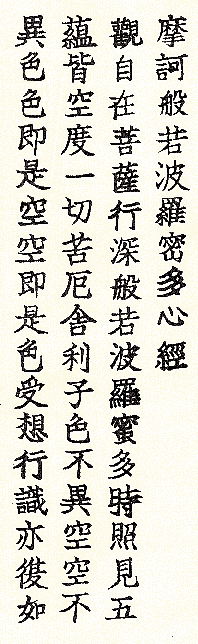 摩訶般若波羅密多心經
觀自在菩薩行深般若波羅蜜多時照見五
蘊皆空度一切苦厄舍利子色不異空空不
異色色即是空空即是色受想行識亦復如